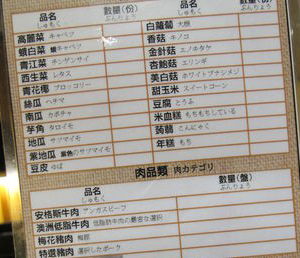 品名 しゅもく 數量(份) ぶんりょう
高麗菜 キャベツ
蛾白菜 キャベツ
青江菜 チンゲンサイ
西生菜 レタス
青花椰 ブロッコリー
絲瓜 ヘチマ
南瓜 カボチャ
芋角 タロイモ
地瓜 サツマイモ
紫地瓜 紫色のサツマイモ
豆皮 ゆば
品名 しゅもく 數量(份) ぶんりょう
白蘿蔔 大根
香菇 キノコ
金針菇 エノキタケ
杏鮑菇 エリンギ
美白菇 ホワイトブナシメジ
甜玉米 スイートコーン
豆腐 とうふ
米血糕 もちもちしている
蒟蒻 こんにゃく
年糕 もち
肉品類 肉カテゴリ
品名 しゅもく 數量(盤) ぶんりょう
安格斯牛肉 アンガスビーフ
澳洲低脂牛肉 低脂肪牛肉の厳密な選択
梅花豬肉 梅豚
特選豬肉 選択したポーク